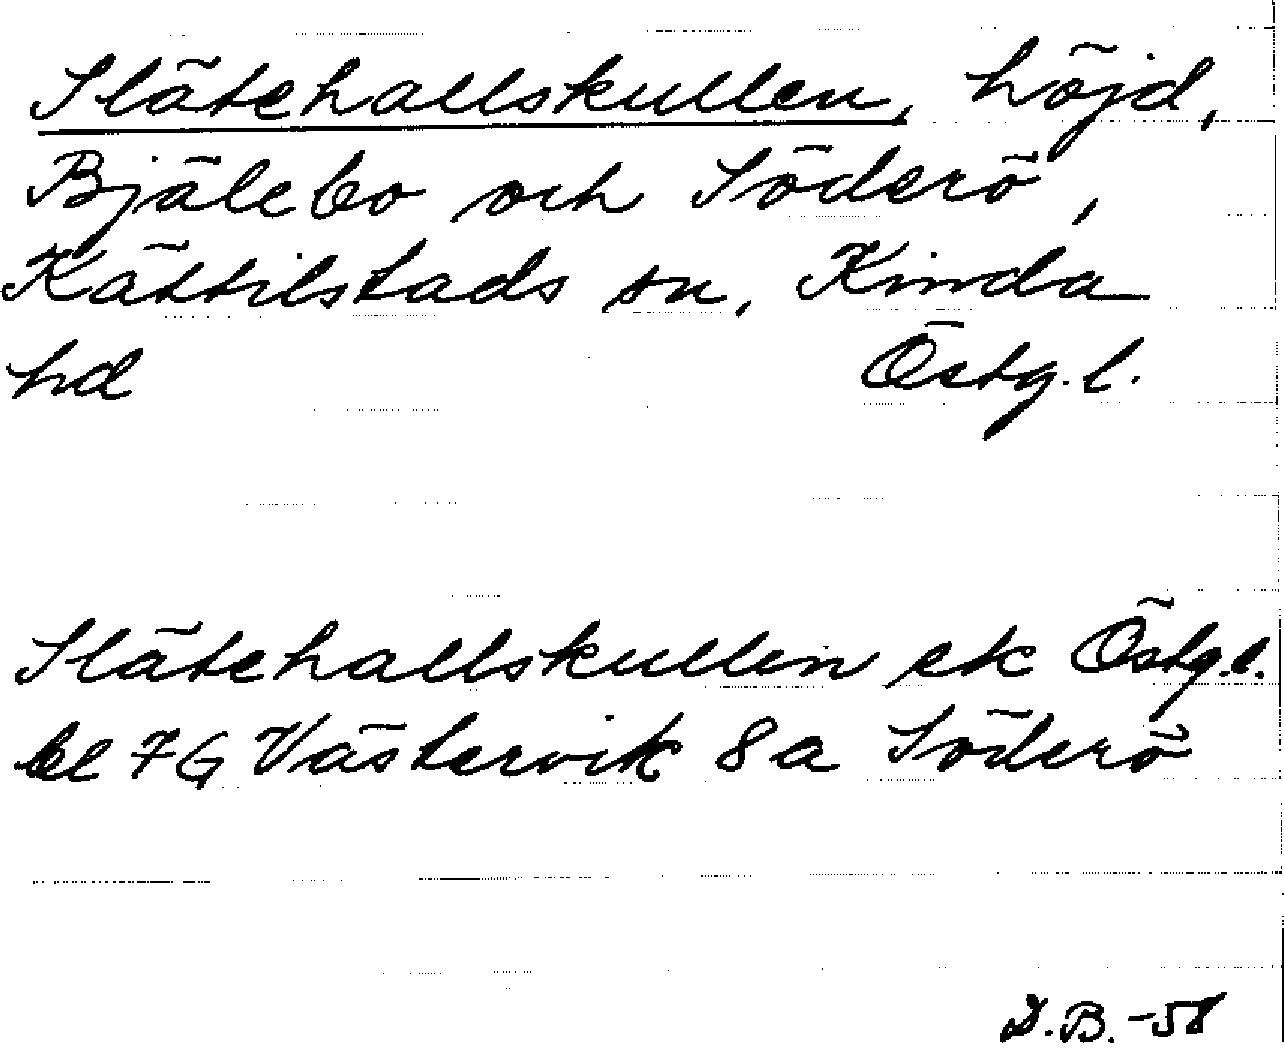 Slätehallskullen, höjd,
Bjälebo och Söderö,
Kättilstads sn, Kinda
hd Östg.l.
Slätehallskullen ek Östg.l.
bl 7G Västervik 8a Söderö
D.B.-58